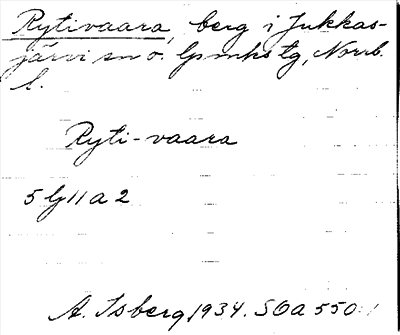 Rytivaara, berg i Jukkas-
järvi sn o. lpmkstg, Norrb.
l.
Ryti-vaara
5 lJ 11 a 2
A. Isberg, 1934. SOA 550